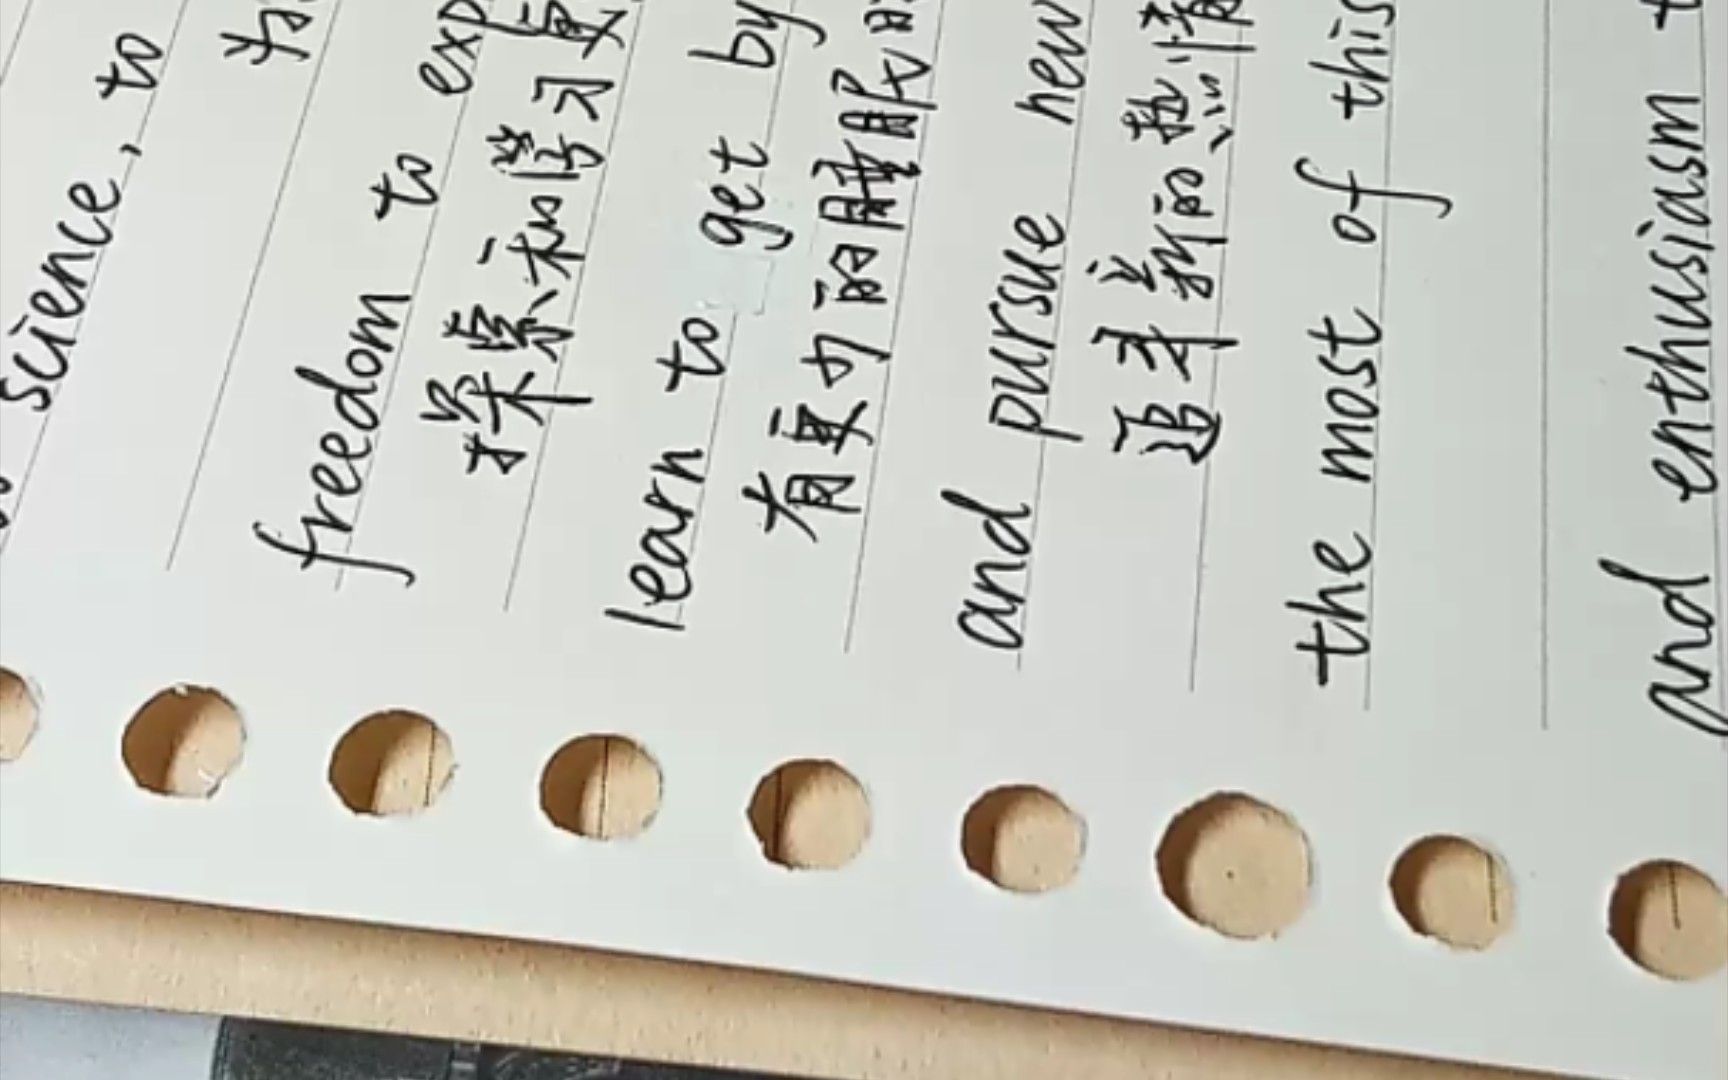 science, to
为
freedom to exp
探索和学习更
learn to get by
有更少的睡眠的
and pursue new
追寻新的热情
the most of this
and enthusiasm t